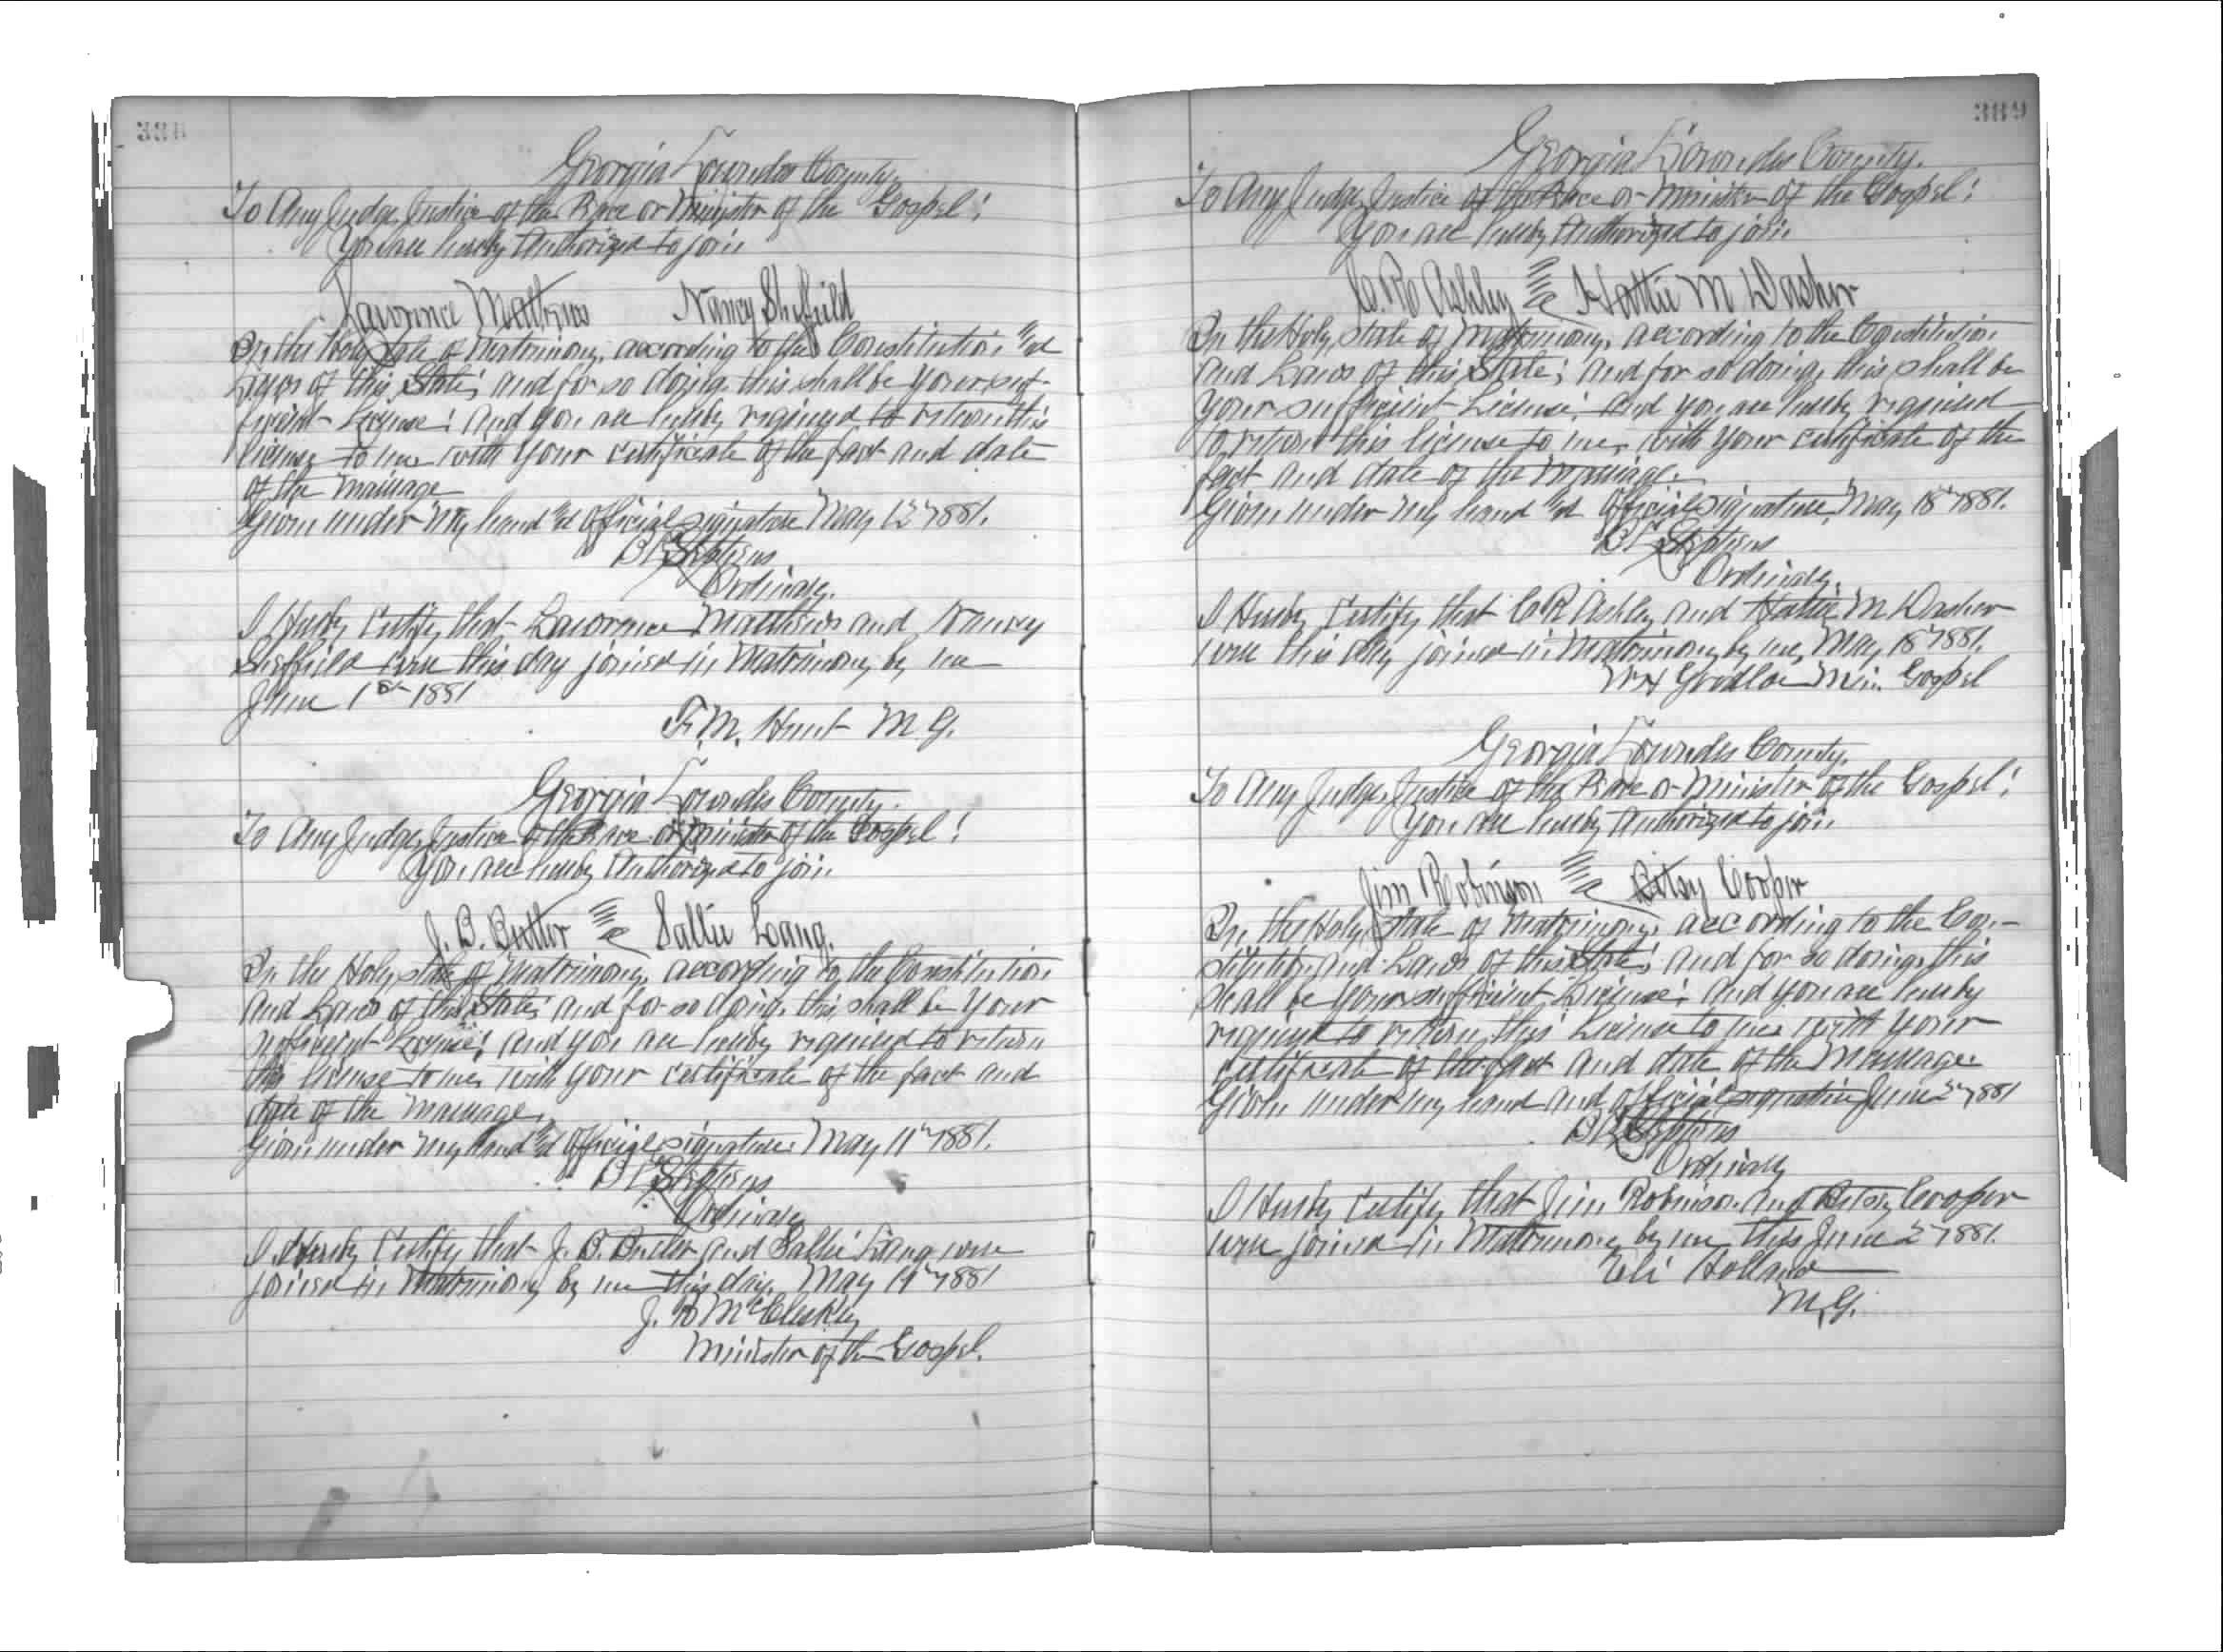 388
Georgia Lowndes County.
To Any Judge, Justice of the Peace or Minister of the Gospel:
You are hereby Authorized to join
Lawrence Mathews Nancy Sheffield
In the Holy State of Matrimony, according to the Constitution and
Laws of this State; and for so doing, this shall be your suf-
ficient License: And you are hereby required to return this
license to me with your certificate of the fact and date
of the marriage
Given under my hand and Official signature May 12" 1881.
Ordinary.
I Hereby Certify that Lawrence Matthews and Nancy
Sheffield were this day joined in Matrimony by me
June 1st 1881
F. M. Hunt M. G.
Georgia Lowndes County.
To Any Judge, Justice of the Peace or Minister of the Gospel:
You are hereby Authorized to join
J. B. Butler and Sallie Lang.
In the Holy state of Matrimony, according to the Constitution
and Laws of this State; and for so doing, this shall be your
sufficient License; and you are hereby required to return
this license to me, with your certificate of the fact and
date of the marriage,
Given under my hand and Official signature May 11" 1881.
Ordinary
I Hereby Certify that J. B. Butler and Sallie Lang were
joined in Matrimony by me this day, May 1881
Minister of the Gospel.
389
Georgia Lowndes County.
To Any Judge, Justice of the Peace or Minister of the Gospel:
You are hereby Authorized to join
C. R. Ashley and Hattie M Dasher
In the Holy State of Matrimony, according to the Constitution
and Laws of this State; and for so doing, this shall be
your sufficient License: and you are hereby required
to return this license to me, with your certificate of the
fact and date of the Marriage.
Given under my hand and Official signature, May 18" 1881.
Ordinary.
I Hereby Certify that C R Ashley and Hattie M Dasher
were this day joined in Matrimony by me, May 18" 1881.
Min. Gospel
Georgia Lowndes County.
To Any Judge, Justice of the Peace or Minister of the Gospel:
You are hereby Authorized to join
Jim Robinson and Betsy Cooper
In the Holy state of Matrimony, according to the Con-
stitution and Laws of this State; and for so doing, this
shall be your sufficient License: and you are hereby
required to return this License to me, with your
certificate of the fact and date of the Marriage
Given under my hand and official signature June 2" 1881
Ordinary
I Hereby Certify that Jim Robinson and Betsy Cooper
were joined in Matrimony by me this June 2" 1881.
Eli Holland
M. G.